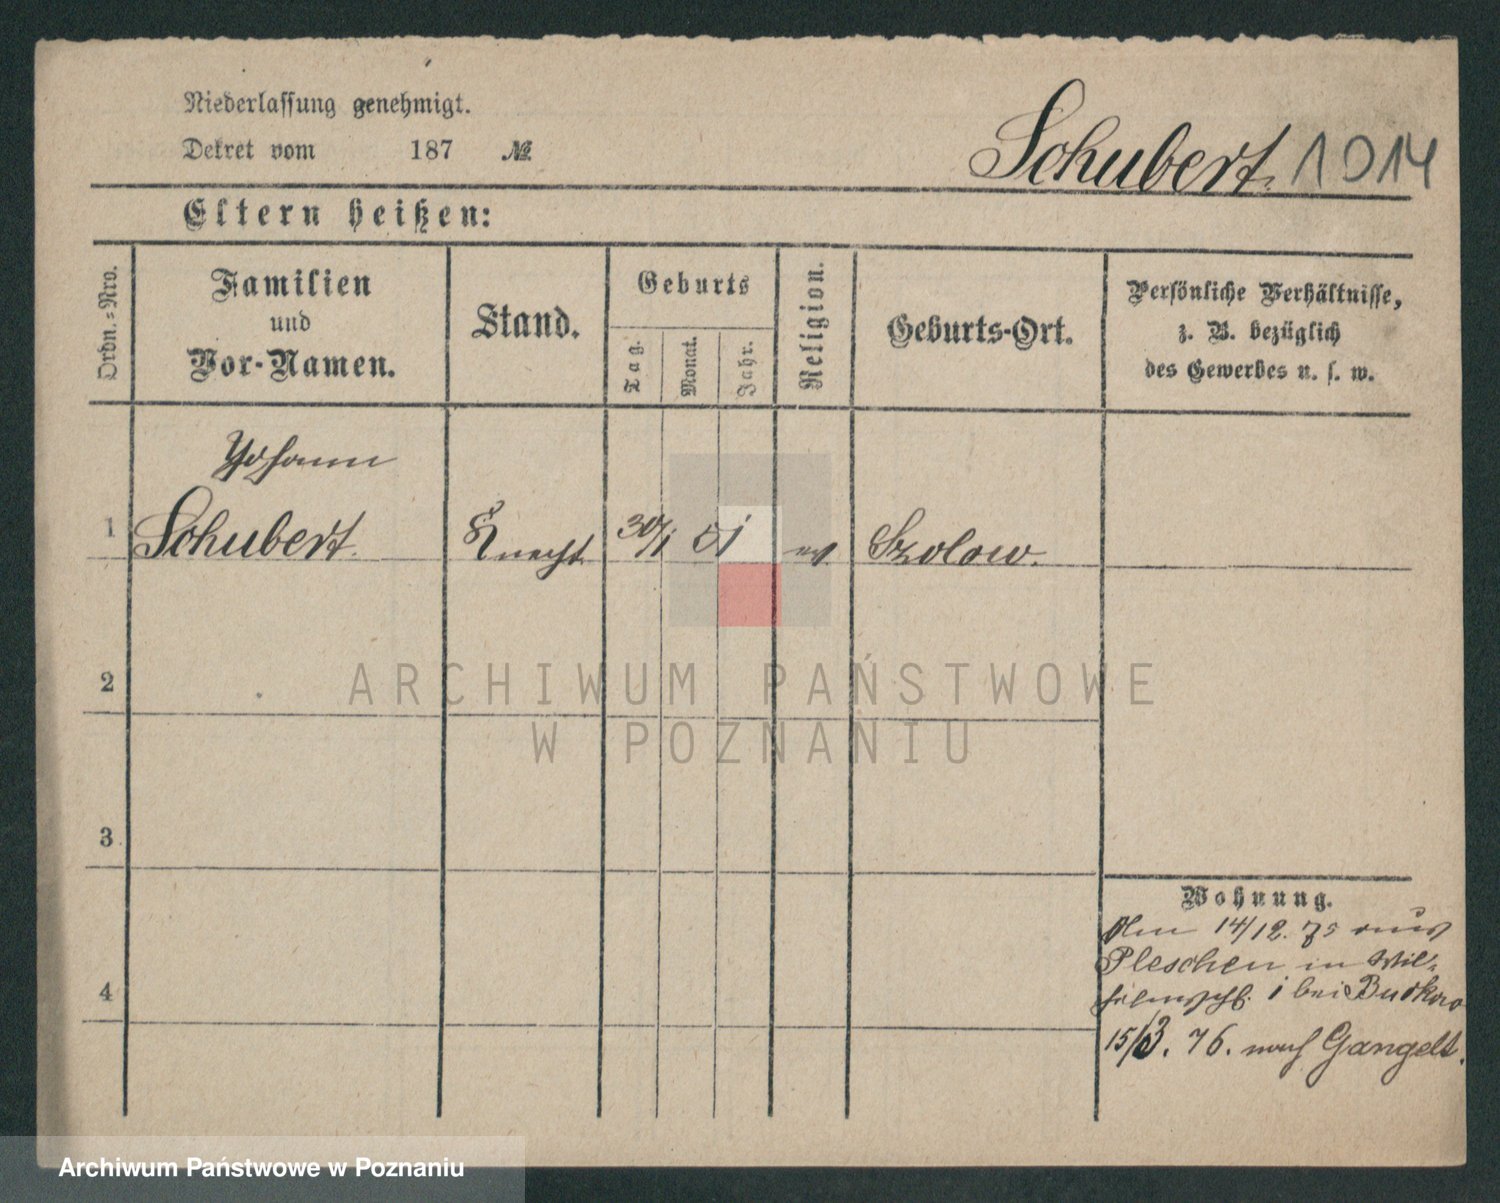 Niederlassung genehmigt.
Dekret vom 187 №
Schubert. 1014
Eltern heißen:
Ordn.=Nro.
Familien
und
Vor-Namen.
Stand.
Geburts
Tag.
Monat.
Jahr.
Religion.
Geburts-Ort.
Persönliche Verhältnisse,
z. B. bezüglich
des Gewerbes u. s. w.
Johann
1 Schubert. Knecht 30/1 51 ev. Szolow.
2
3
4
Wohnung.
Am 14/12. 75 aus
Pleschen in Wil-
helmsstr. 1 bei
15/3. 76. nach Gangelt.
ARCHIWUM PAŃSTWOWE
W POZNANIU
Archiwum Państwowe w Poznaniu